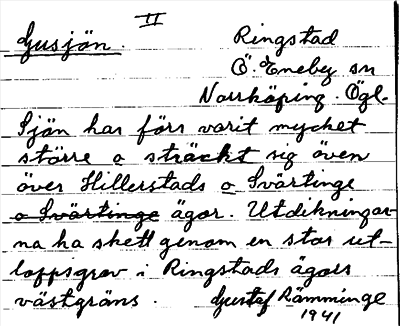 II
Gusjön.
Ringstad
Ö. Eneby sn
Norrköping. Ögl.
Sjön har förr varit mycket
större o sträckt sig även
över Hillerstads o Svärtinge
o Svärtinge ägor. Utdikningar-
na ha skett genom en stor ut-
loppsgrav i Ringstads ägors
västgräns.
Gustaf Rämminge
1941